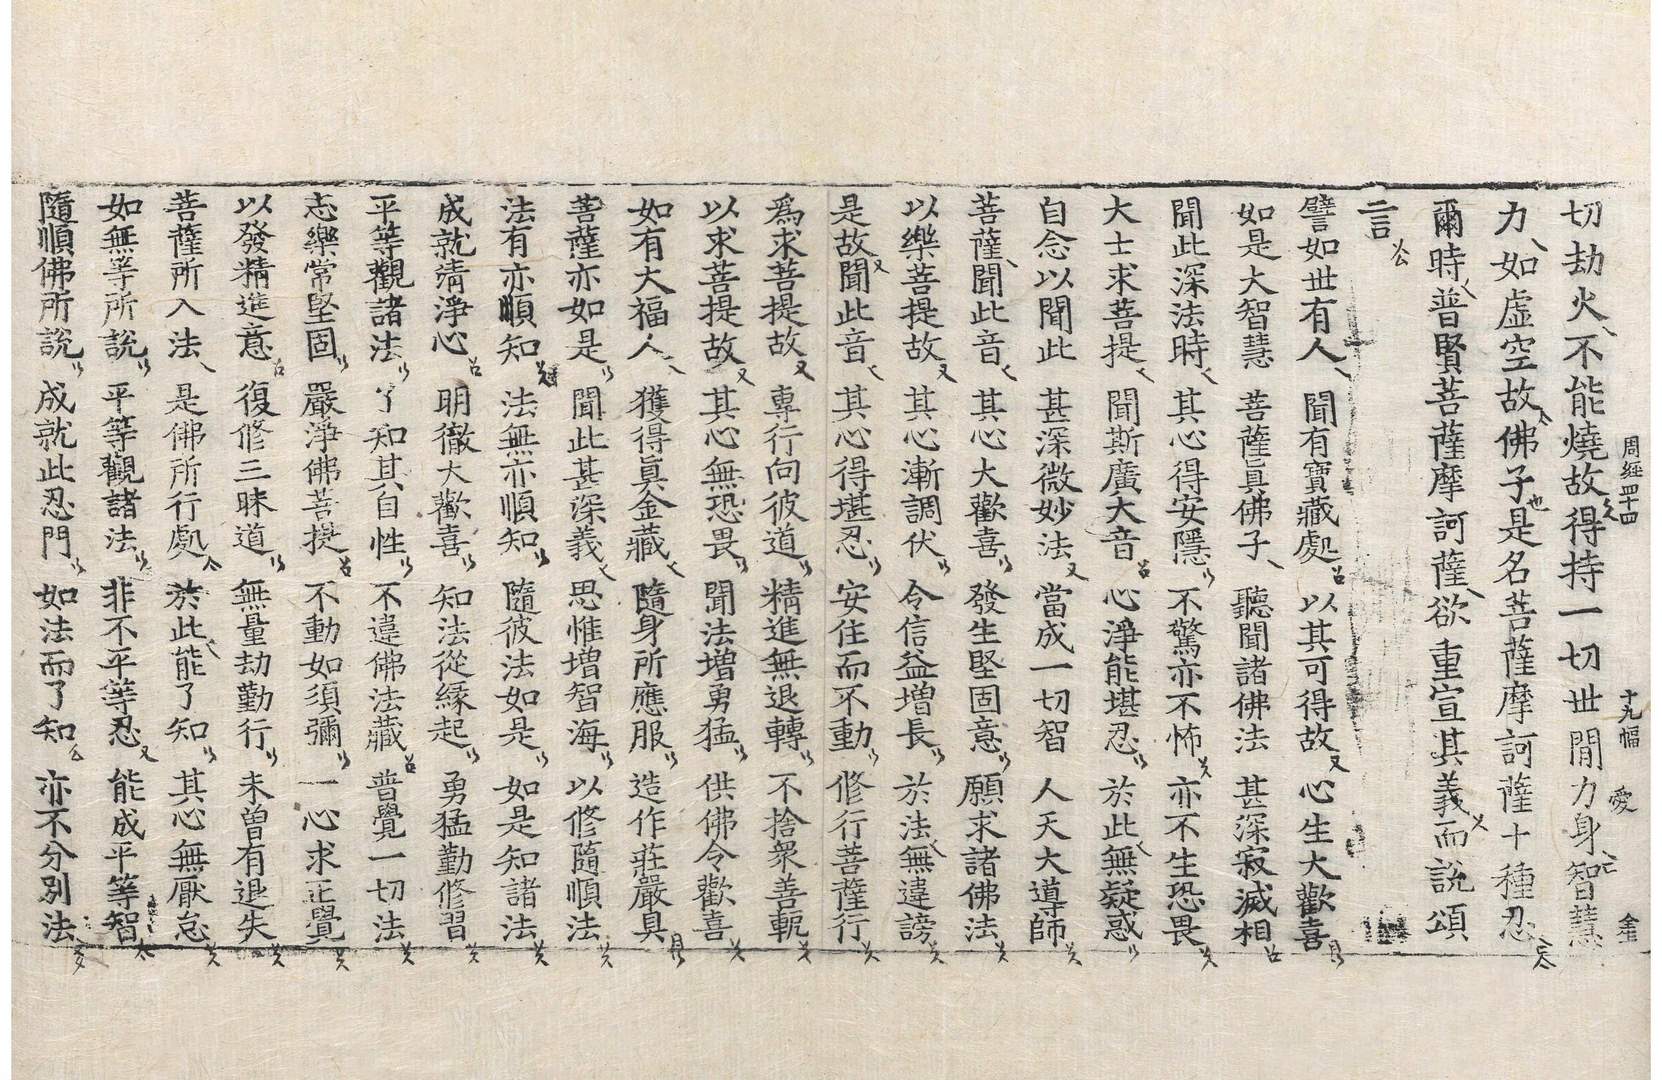 切劫火不能燒故得持一切世間力身智慧
力如虛空故佛子是名菩薩摩訶薩十種忍
爾時普賢菩薩摩訶薩欲重宣其義而說頌
言
譬如世有人 聞有寶藏處 以其可得故 心生大歡喜
如是大智慧 菩薩眞佛子 聽聞諸佛法 甚深寂滅相
聞此深法時 其心得安隱 不驚亦不怖 亦不生恐畏
大士求菩提 聞斯廣大音 心淨能堪忍 於此無疑惑
自念以聞此 甚深微妙法 當成一切智 人天大導師
菩薩聞此音 其心大歡喜 發生堅固意 願求諸佛法
以樂菩提故 其心漸調伏 令信益增長 於法無違謗
是故聞此音 其心得堪忍 安住而不動 修行菩薩行
爲求菩提故 專行向彼道 精進無退轉 不捨衆善軛
以求菩提故 其心無恐畏 聞法增勇猛 供佛令歡喜
如有大福人 獲得眞金藏 隨身所應服 造作莊嚴具
菩薩亦如是 聞此甚深義 思惟增智海 以修隨順法
法有亦順知 法無亦順知 隨彼法如是 如是知諸法
成就清淨心 明徹大歡喜 知法從緣起 勇猛勤修習
平等觀諸法 了知其自性 不違佛法藏 普覺一切法
志樂常堅固 嚴淨佛菩提 不動如須彌 一心求正覺
以發精進意 復修三昧道 無量劫勤行 未曾有退失
菩薩所入法 是佛所行處 於此能了知 其心無厭怠
如無等所說 平等觀諸法 非不平等忍 能成平等智
隨順佛所說 成就此忍門 如法而了知 亦不分別法
周經四十四 十九幅 愛